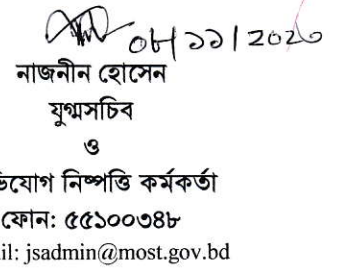 ০৮/১১/২০২০
নাজনীন হোসেন
যুগ্মসচিব
ও
নিষ্পত্তি কর্মকর্তা
ফোন: ৫৫১০০৩৪৮
jsadmin@most.gov.bd